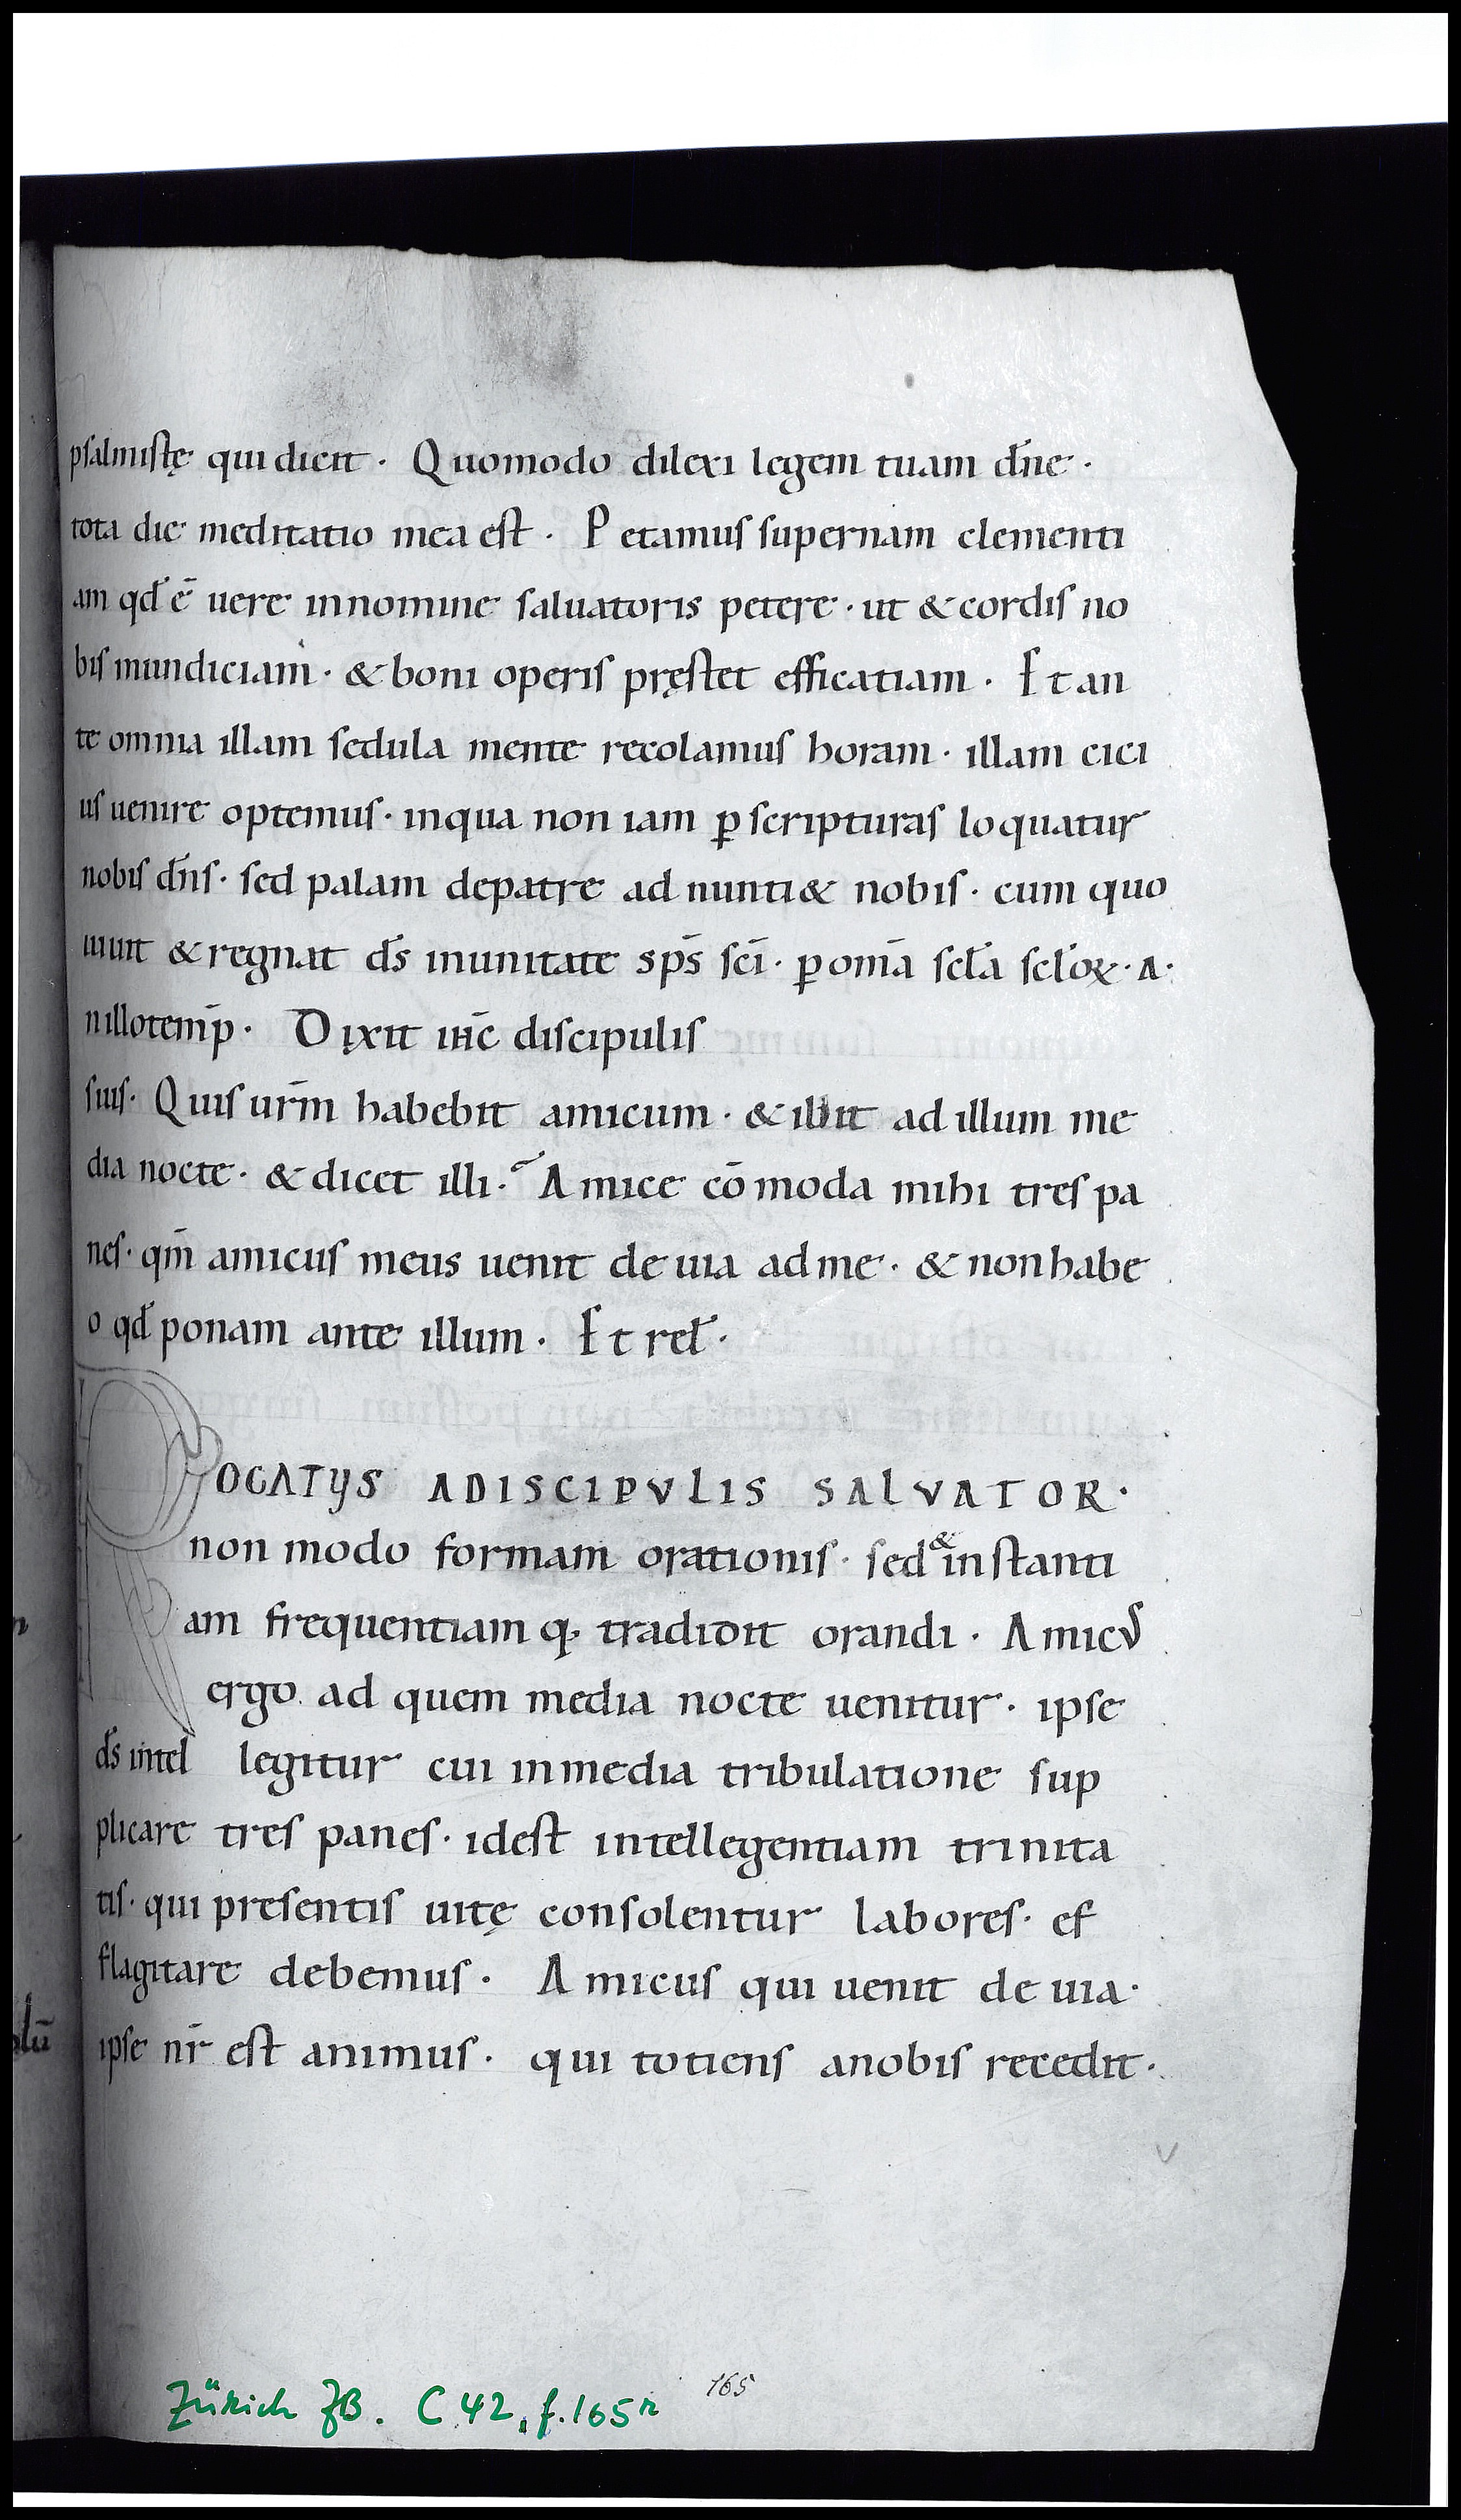 psalmistę qui dicit · Quomodo dilexi legem tuam dn̄e ·
tota die meditatio mea est · Petamus supernam clementi
am qd̄ ē uere in nomine saluatoris petere · ut & cordis no
bis mundiciam · & boni operis pręstet efficatiam · Et an
te omnia illam sedula mente recolamus horam · illam cici
us uenire optemus · in qua non iam ꝑ scripturas loquatur
nobis dn̄s · sed palam de patre ad nunti& nobis · cum quo
uiuit & regnat ds̄ in unitate sp̄s sc̄i · ꝑ om̄a scl̄a scl̄oꝝ · a ·
n illo temp̄ · Dixit ih̄c discipulis
suis · Quis ur̄m habebit amicum · & ibit ad illum me
dia nocte · & dicet illi · Amice cō moda mihi tres pa
nes · qm̄ amicus meus uenit de uia ad me · & non habe
o qd̄ ponam ante illum · Et rel̄ ·
ROGATUS A DISCIPVLIS SALVATOR ·
non modo formam orationis · sed & in stanti
am frequentiam q; tradidit orandi · Amicus
ergo ad quem media nocte uenitur · ipse
ds̄ intel legitur cui in media tribulatione sup
plicare tres panes · id est intellegentiam trinita
tis · qui presentis uitę consolentur labores · ef
flagitare debemus · Amicus qui uenit de uia ·
ipse nr̄ est animus · qui totiens a nobis recedit ·
Zürich ZB. C 42, f. 165r
165